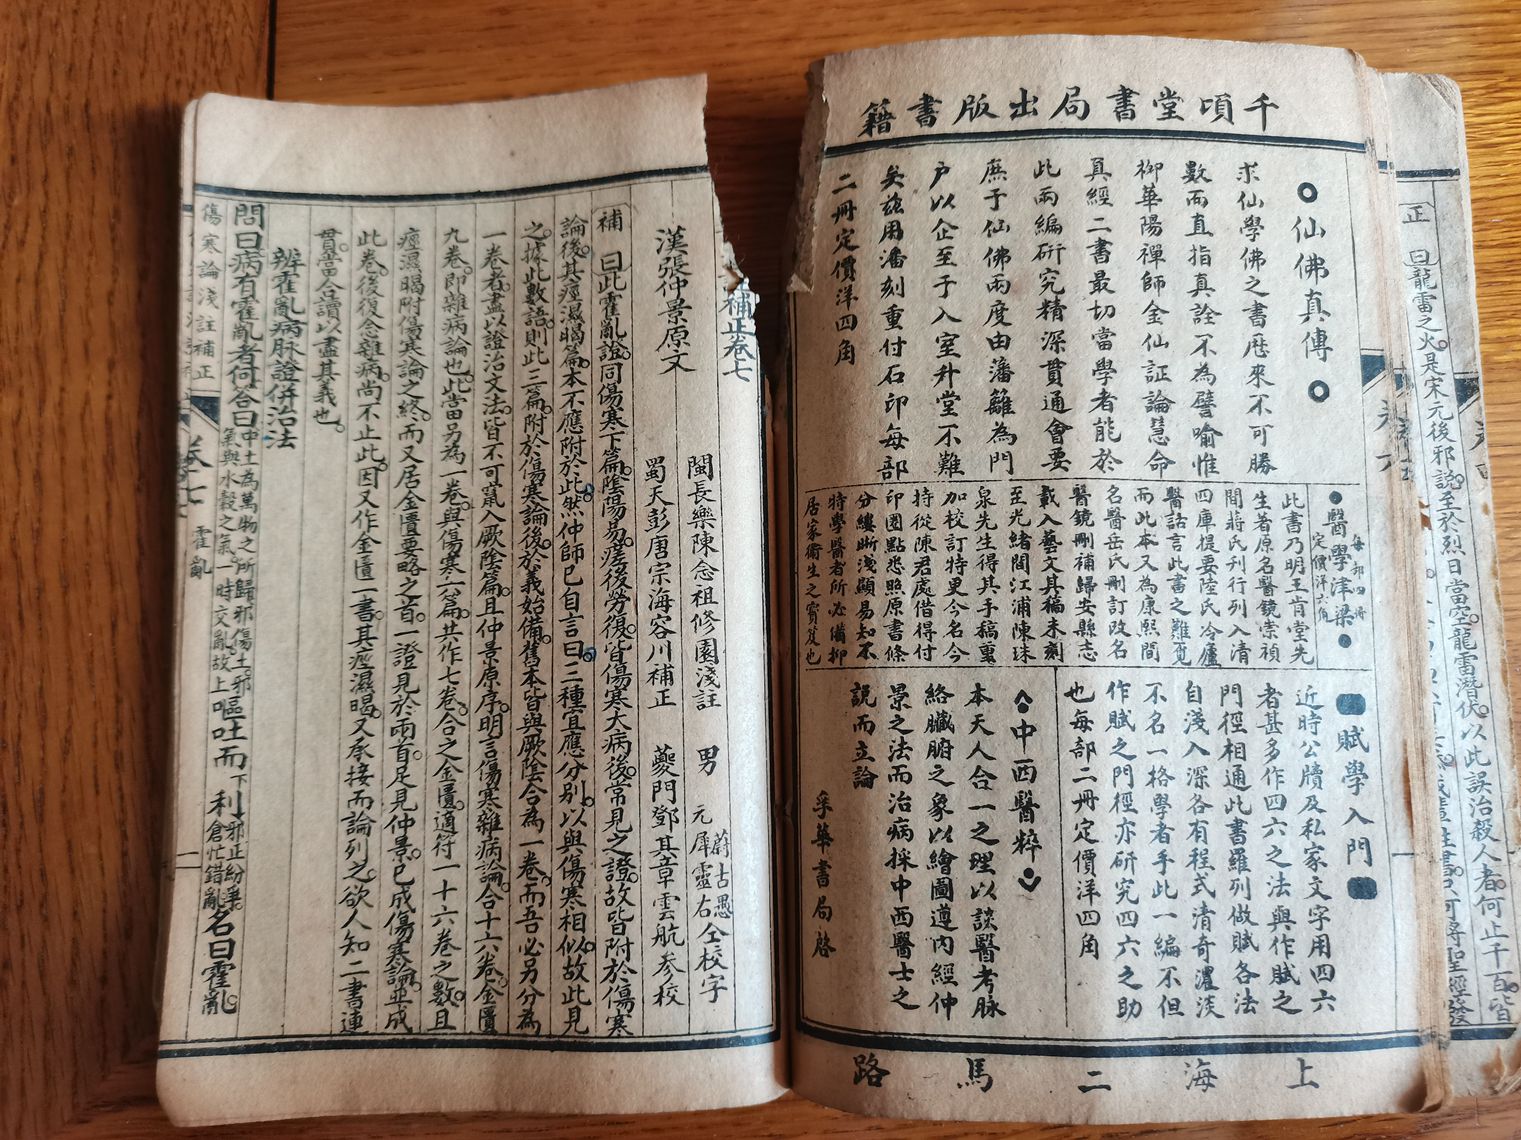 千頃堂書局出版書籍
仙佛真傳
求仙學佛之書歷來不可勝
數而直指真詮不為譬喻惟
柳華陽禪師金仙証論慧命
真經二書最切當學者能於
此兩編研究精深貫通會要
庶于仙佛兩度由藩籬為門
户以企至于入室升堂不難
矣茲用潘刻重付石印每部
二冊定價洋四角
醫學津梁
每部四冊
定價洋六角
此書乃明王肯堂先
生著原名醫鏡崇禎
間蔣氏刊行列入清
四庫提要陸氏冷廬
醫話言此書之難覓
而此本又為康熙間
名醫岳氏刪訂改名
醫鏡刪補歸安縣志
載入藝文其稿未刻
至光緒間江浦陳珠
泉先生得其手稿重
加校訂特更今名今
特從陳君處借得付
印圈點悉照原書條
分縷晰淺顯易知不
特學醫者所必備抑
居家衛生之寶笈也
賦學入門
近時公牘及私家文字用四六
者甚多作四六之法與作賦之
門徑相通此書羅列做賦各法
自淺入深各有程式清奇濃淡
不名一格學者手此一編不但
作賦之門徑亦研究四六之助
也每部二冊定價洋四角
中西醫粹
本天人合一之理以談醫考脉
絡臟腑之象以繪圖遵内經仲
景之法而治病採中西醫士之
說而立論
采華書局啓
上海二馬路
補正卷七
漢張仲景原文
閩長樂陳念祖修園淺註
男
元犀靈石
蔚古愚
仝校字
蜀天彭唐宗海容川補正
夔門鄧其章雲航參校
補
曰此霍亂證同傷寒下篇陰陽易瘥後勞復皆傷寒大病後常見之證故皆附於傷寒
論後其痙濕暍篇本不應附於此然仲師已自言曰三種宜應分別以與傷寒相似故此見
之據此數語則此三篇附於傷寒論後於義始備舊本皆與厥陰合為一卷而吾必另分為
一卷者盡以證治文法皆不可羼入厥陰篇且仲景原序明言傷寒雜病論合十六卷金匱
九卷即雜病論也此當另為一卷與傷寒六篇共作七卷合之金匱適符一十六卷之數且
痙濕暍附傷寒論之終而又居金匱要略之首一證見於兩首足見仲景已成傷寒論並成
此卷後復念雜病尚不止此因又作金匱一書其痙濕暍又承接而論列之欲人知二書連
貫當合讀以盡其義也
辨霍亂病脉證併治法
問曰病有霍亂者何答曰
中土為萬物之所歸邪傷土邪
氣與水穀之氣一時交亂故上
嘔吐而下利
邪正紛爭
倉忙錯亂
名曰霍亂
傷寒論淺註補正
卷七
霍亂
卷六
正
曰龍雷之火是宋元後邪說至於烈日當空龍雷潛伏以此誤治殺人者何止千百皆